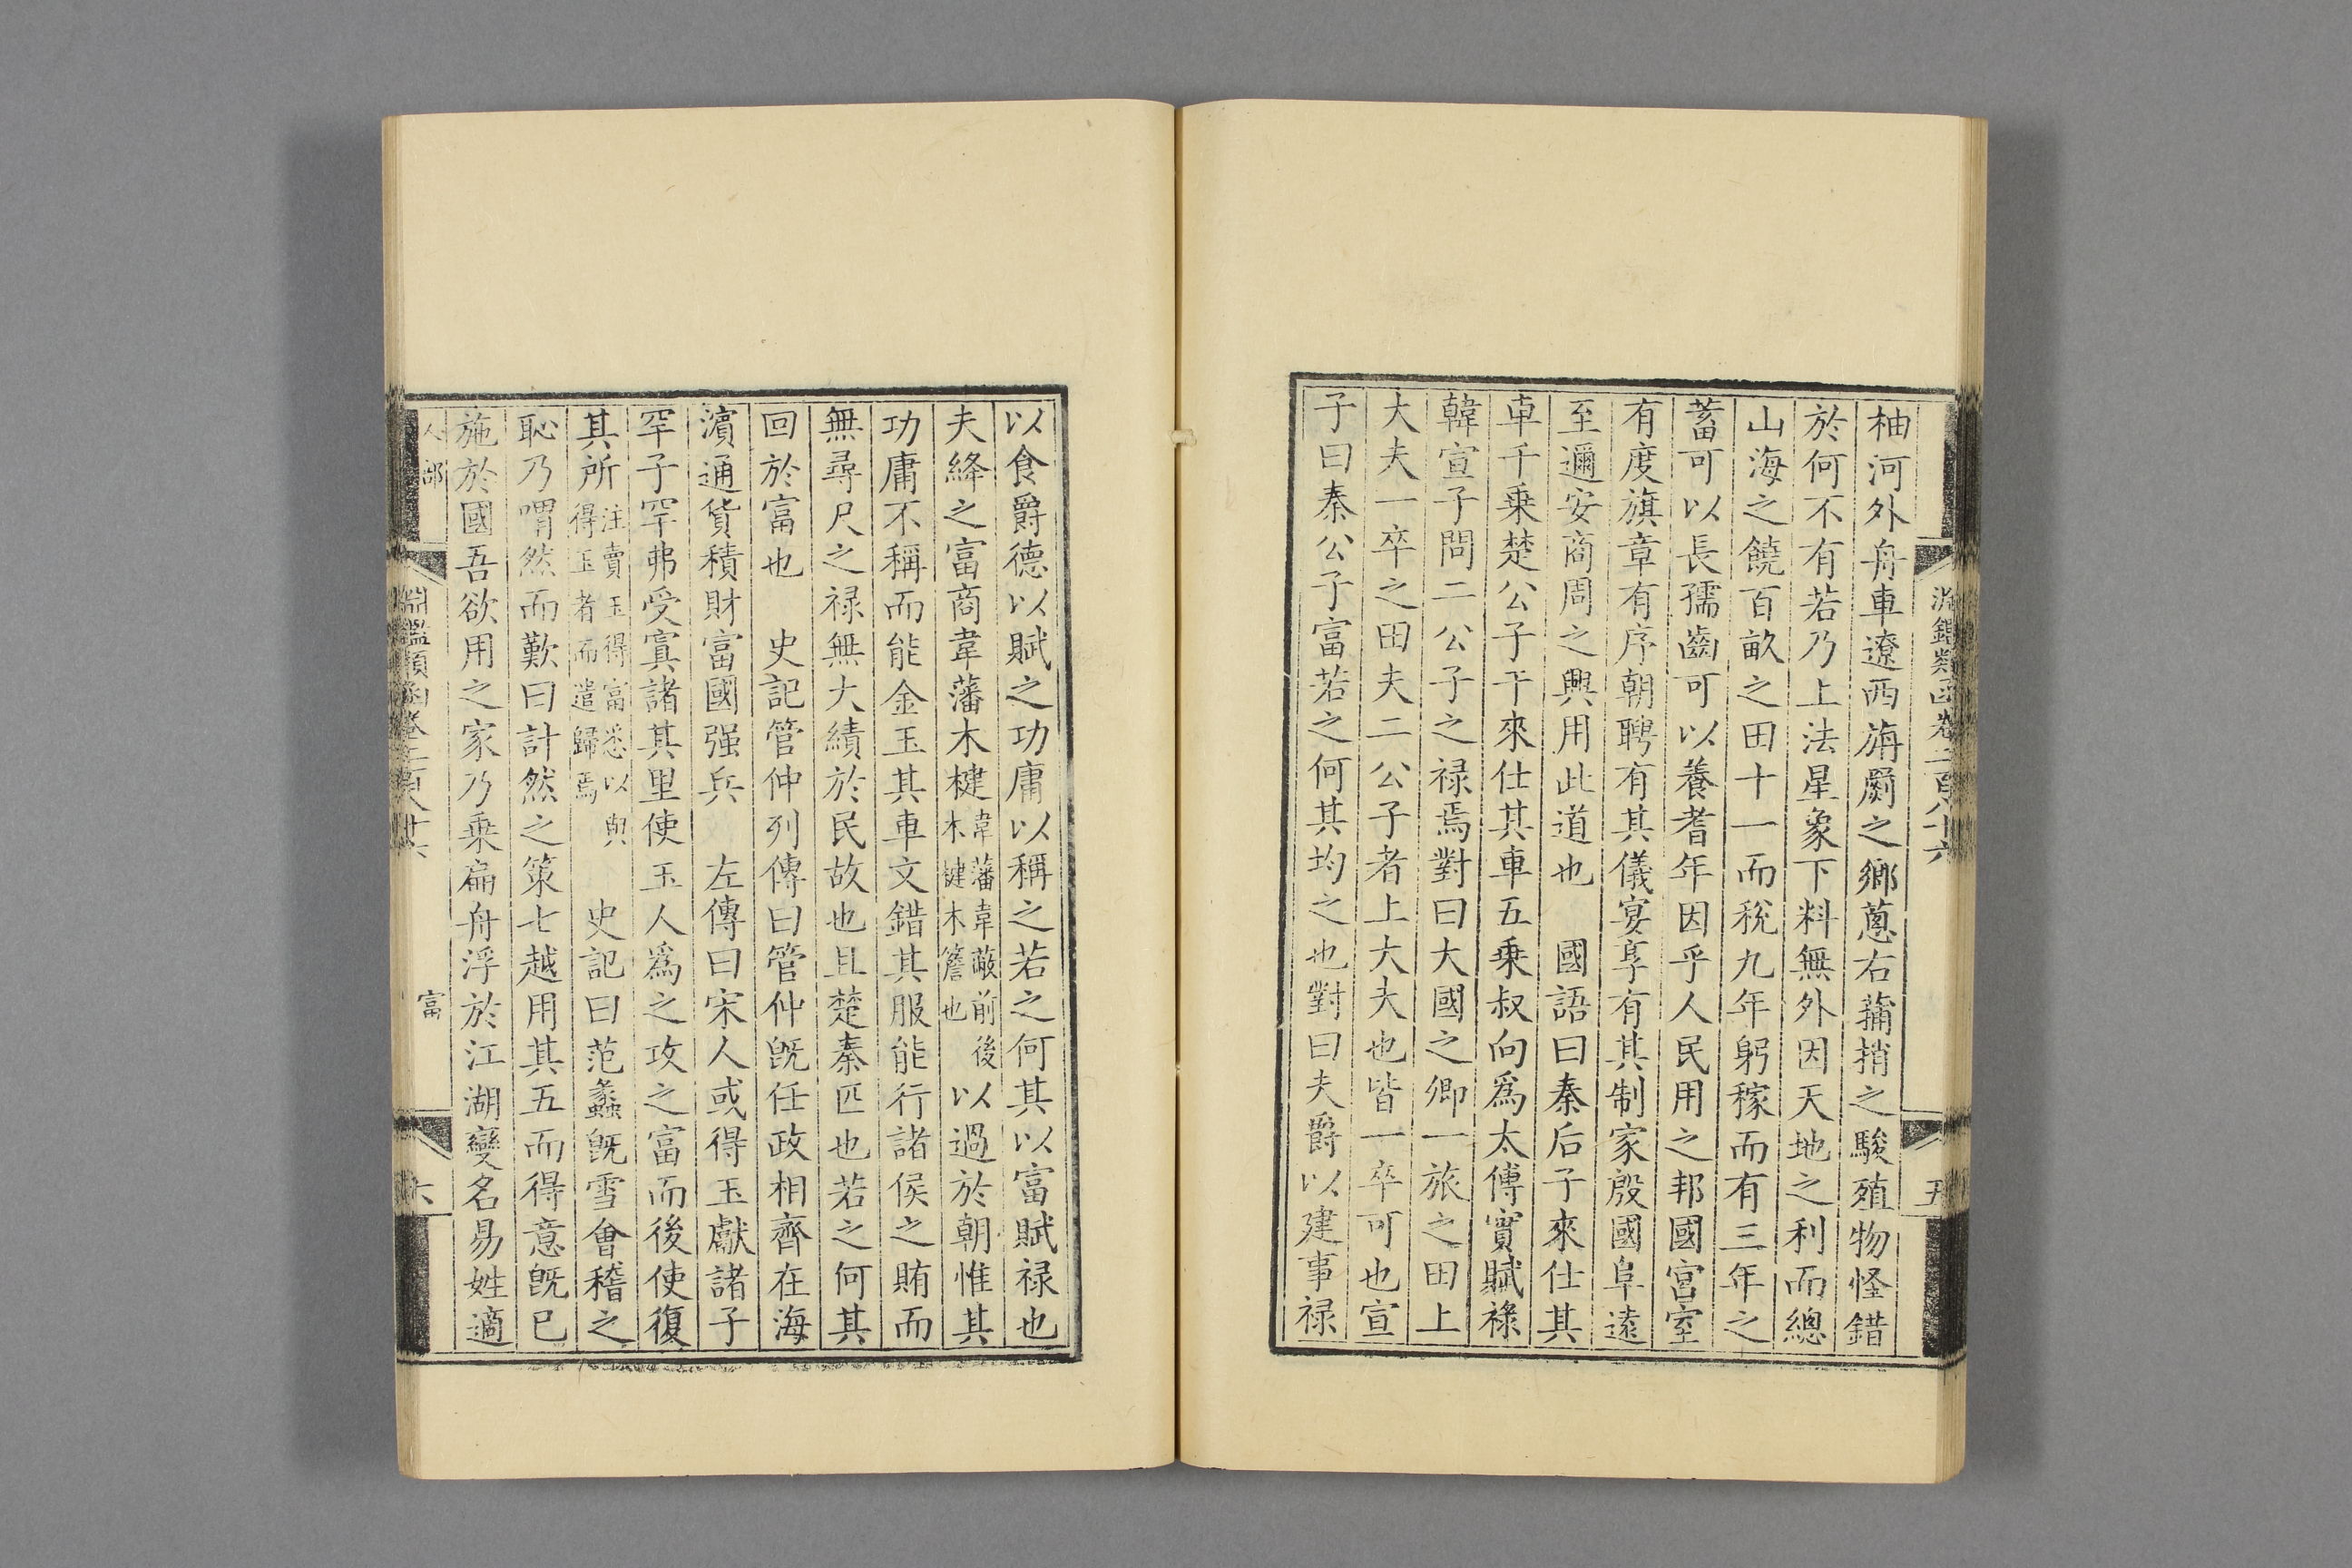 柚河外舟車遼西旃罽之鄉蔥右蒱捎之駿殖物怪錯
於何不有若乃上法星象下料無外因天地之利而總
山海之饒百畝之田十一而稅九年躬稼而有三年之
蓄可以長孺齒可以養耆年因乎人民用之邦國宮室
有度旗章有序朝聘有其儀宴享有其制家殷國阜遠
至邇安商周之興用此道也　國語曰秦后子來仕其
車千乗楚公子干來仕其車五乗叔向爲太傅實賦祿
韓宣子問二公子之禄焉對曰大國之卿一旅之田上
大夫一卒之田夫二公子者上大夫也皆一卒可也宣
子曰秦公子富若之何其均之也對曰夫爵以建事禄
以食爵德以賦之功庸以稱之若之何其以富賦禄也
夫絳之富商韋藩木楗韋藩韋蔽前後木楗木簷也以過於朝惟其
功庸不稱而能金玉其車文錯其服能行諸侯之賄而
無尋尺之禄無大績於民故也且楚秦匹也若之何其
回於富也　史記管仲列傳曰管仲既任政相齊在海
濱通貨積財富國强兵　左傳曰宋人或得玉獻諸子
罕子罕弗受寘諸其里使玉人爲之攻之富而後使復
其所注賣玉得富悉以與得玉者而遣歸焉　史記曰范蠡既雪會稽之
恥乃喟然而歎曰計然之策七越用其五而得意既已
施於國吾欲用之家乃乗扁舟浮於江湖變名易姓適
人部
富
六